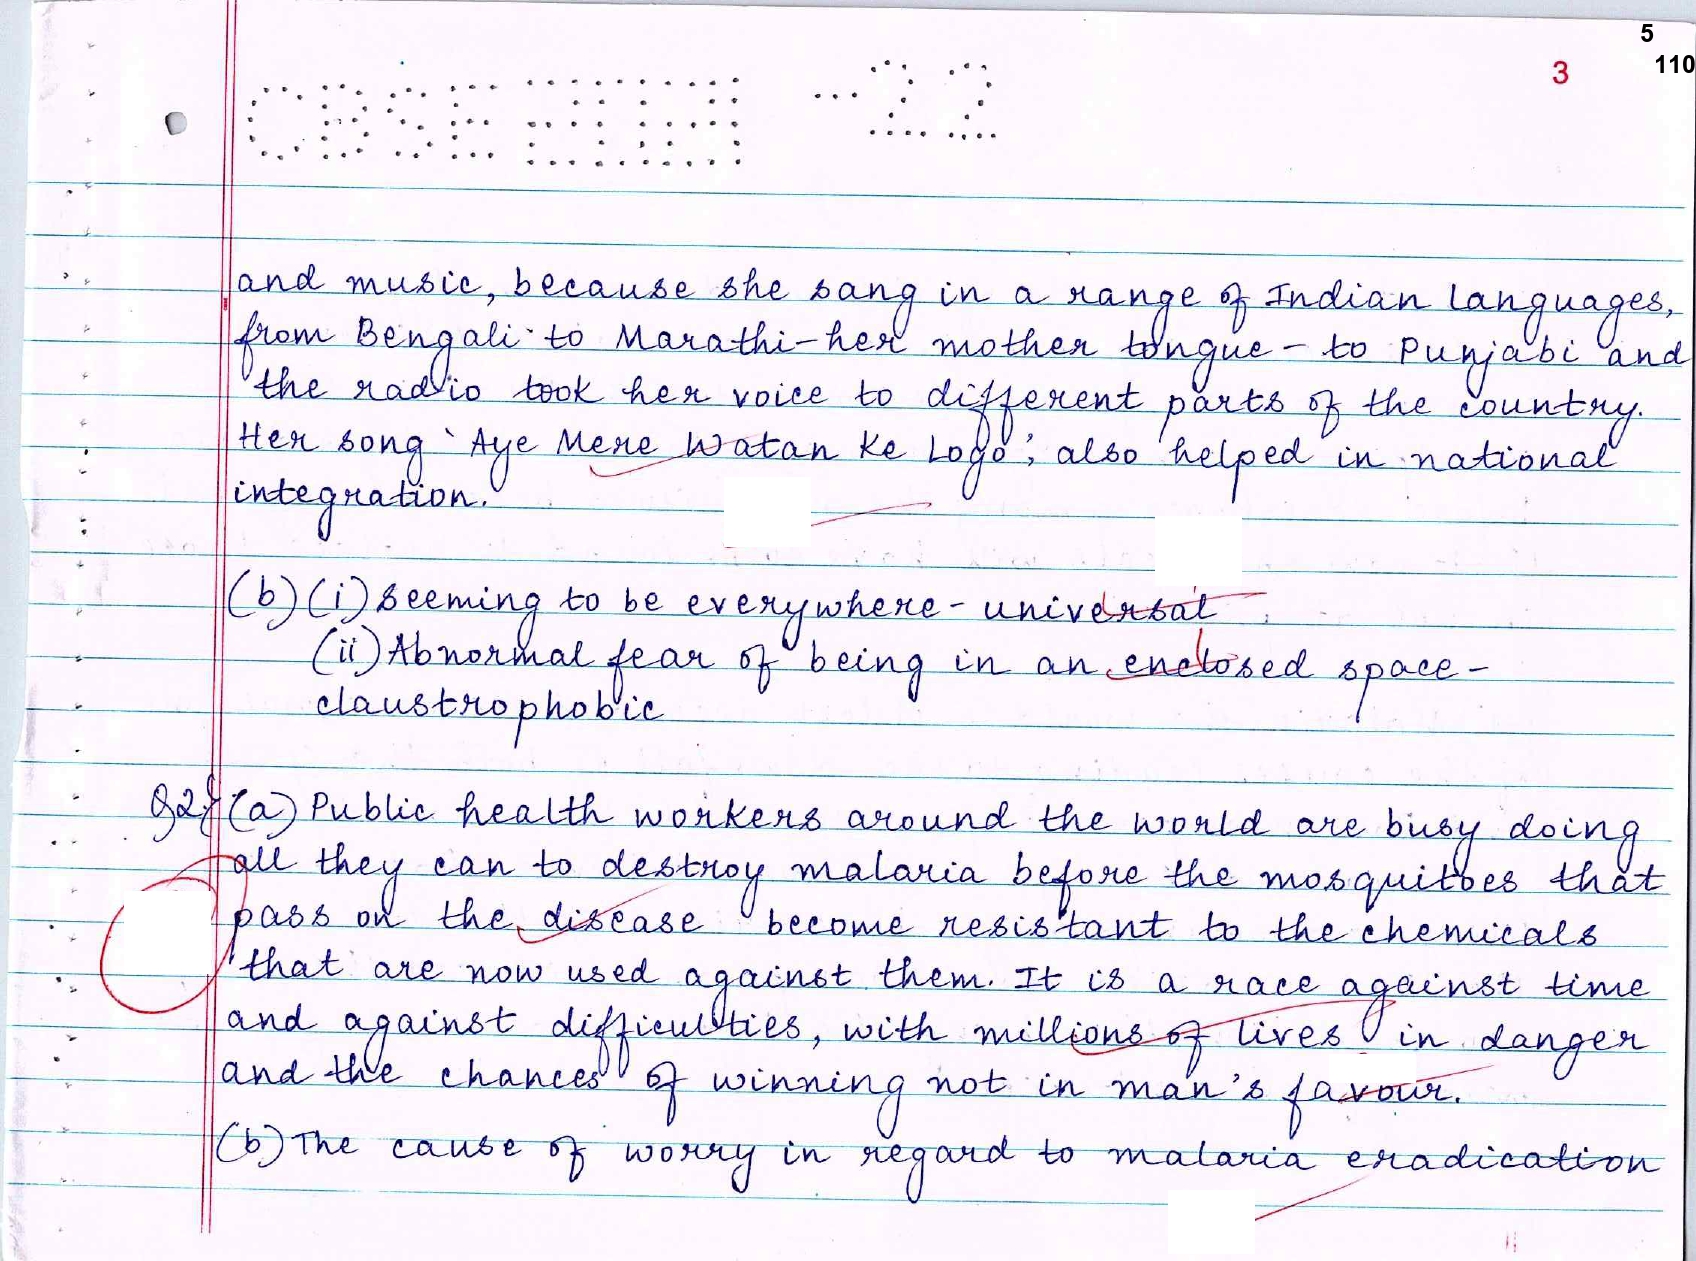 5
110
3
CBSE -22
and music, because she sang in a range of Indian languages,
from Bengali to Marathi-her mother tongue - to Punjabi and
the radio took her voice to different parts of the country.
Her song 'Aye Mere Watan Ke Logo', also helped in national
integration.
(b) (i) Seeming to be everywhere - universal
(ii) Abnormal fear of being in an enclosed space -
claustrophobic
Q2. (a) Public health workers around the world are busy doing
all they can to destroy malaria before the mosquitoes that
pass on the disease become resistant to the chemicals
that are now used against them. It is a race against time
and against difficulties, with millions of lives in danger
and the chances of winning not in man's favour.
(b) The cause of worry in regard to malaria eradication